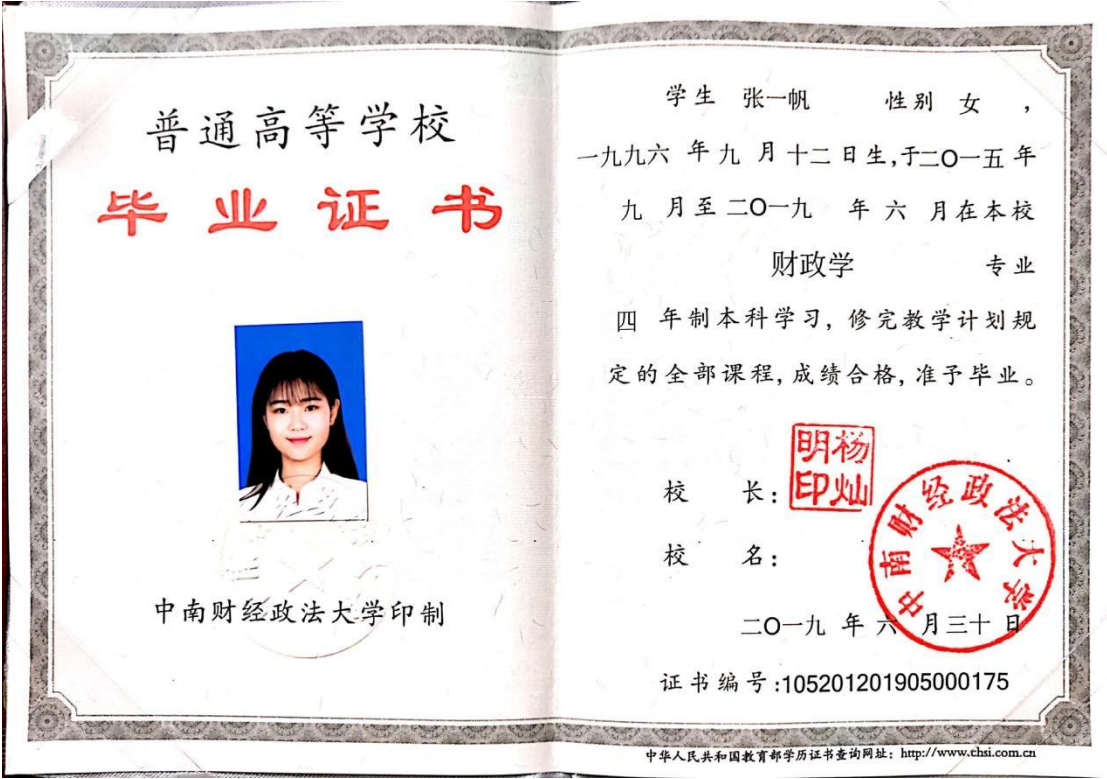 普通高等学校
毕业证书
中南财经政法大学印制
学生 张一帆 性别 女 ,
一九九六 年 九 月 十二 日生,于二O一五 年
九 月至 二O一九 年 六 月在本校
财政学 专业
四 年制本科学习, 修完教学计划规
定的全部课程, 成绩合格, 准予毕业。
校 长: 杨灿明印
校 名: 中南财经政法大学
二O一九 年 六 月三十 日
证书编号:105201201905000175
中华人民共和国教育部学历证书查询网址: http://www.chsi.com.cn